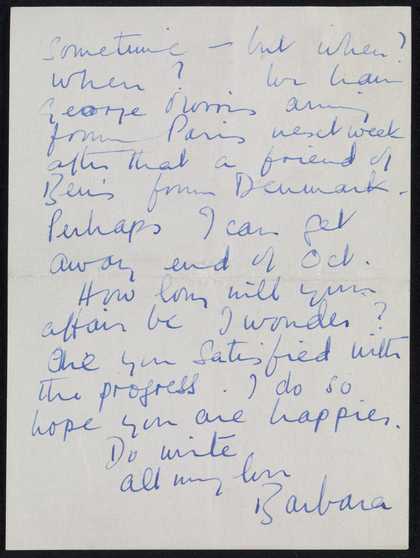 Sometime – but when?
When? We have
George Morris arriving
from Paris next week
after that a friend of
Ben's from Denmark.
Perhaps I can get
away end of Oct.
How long will your
affair be I wonder?
Are you satisfied with
the progress. I do so
hope you are happier.
Do write
all my love
Barbara